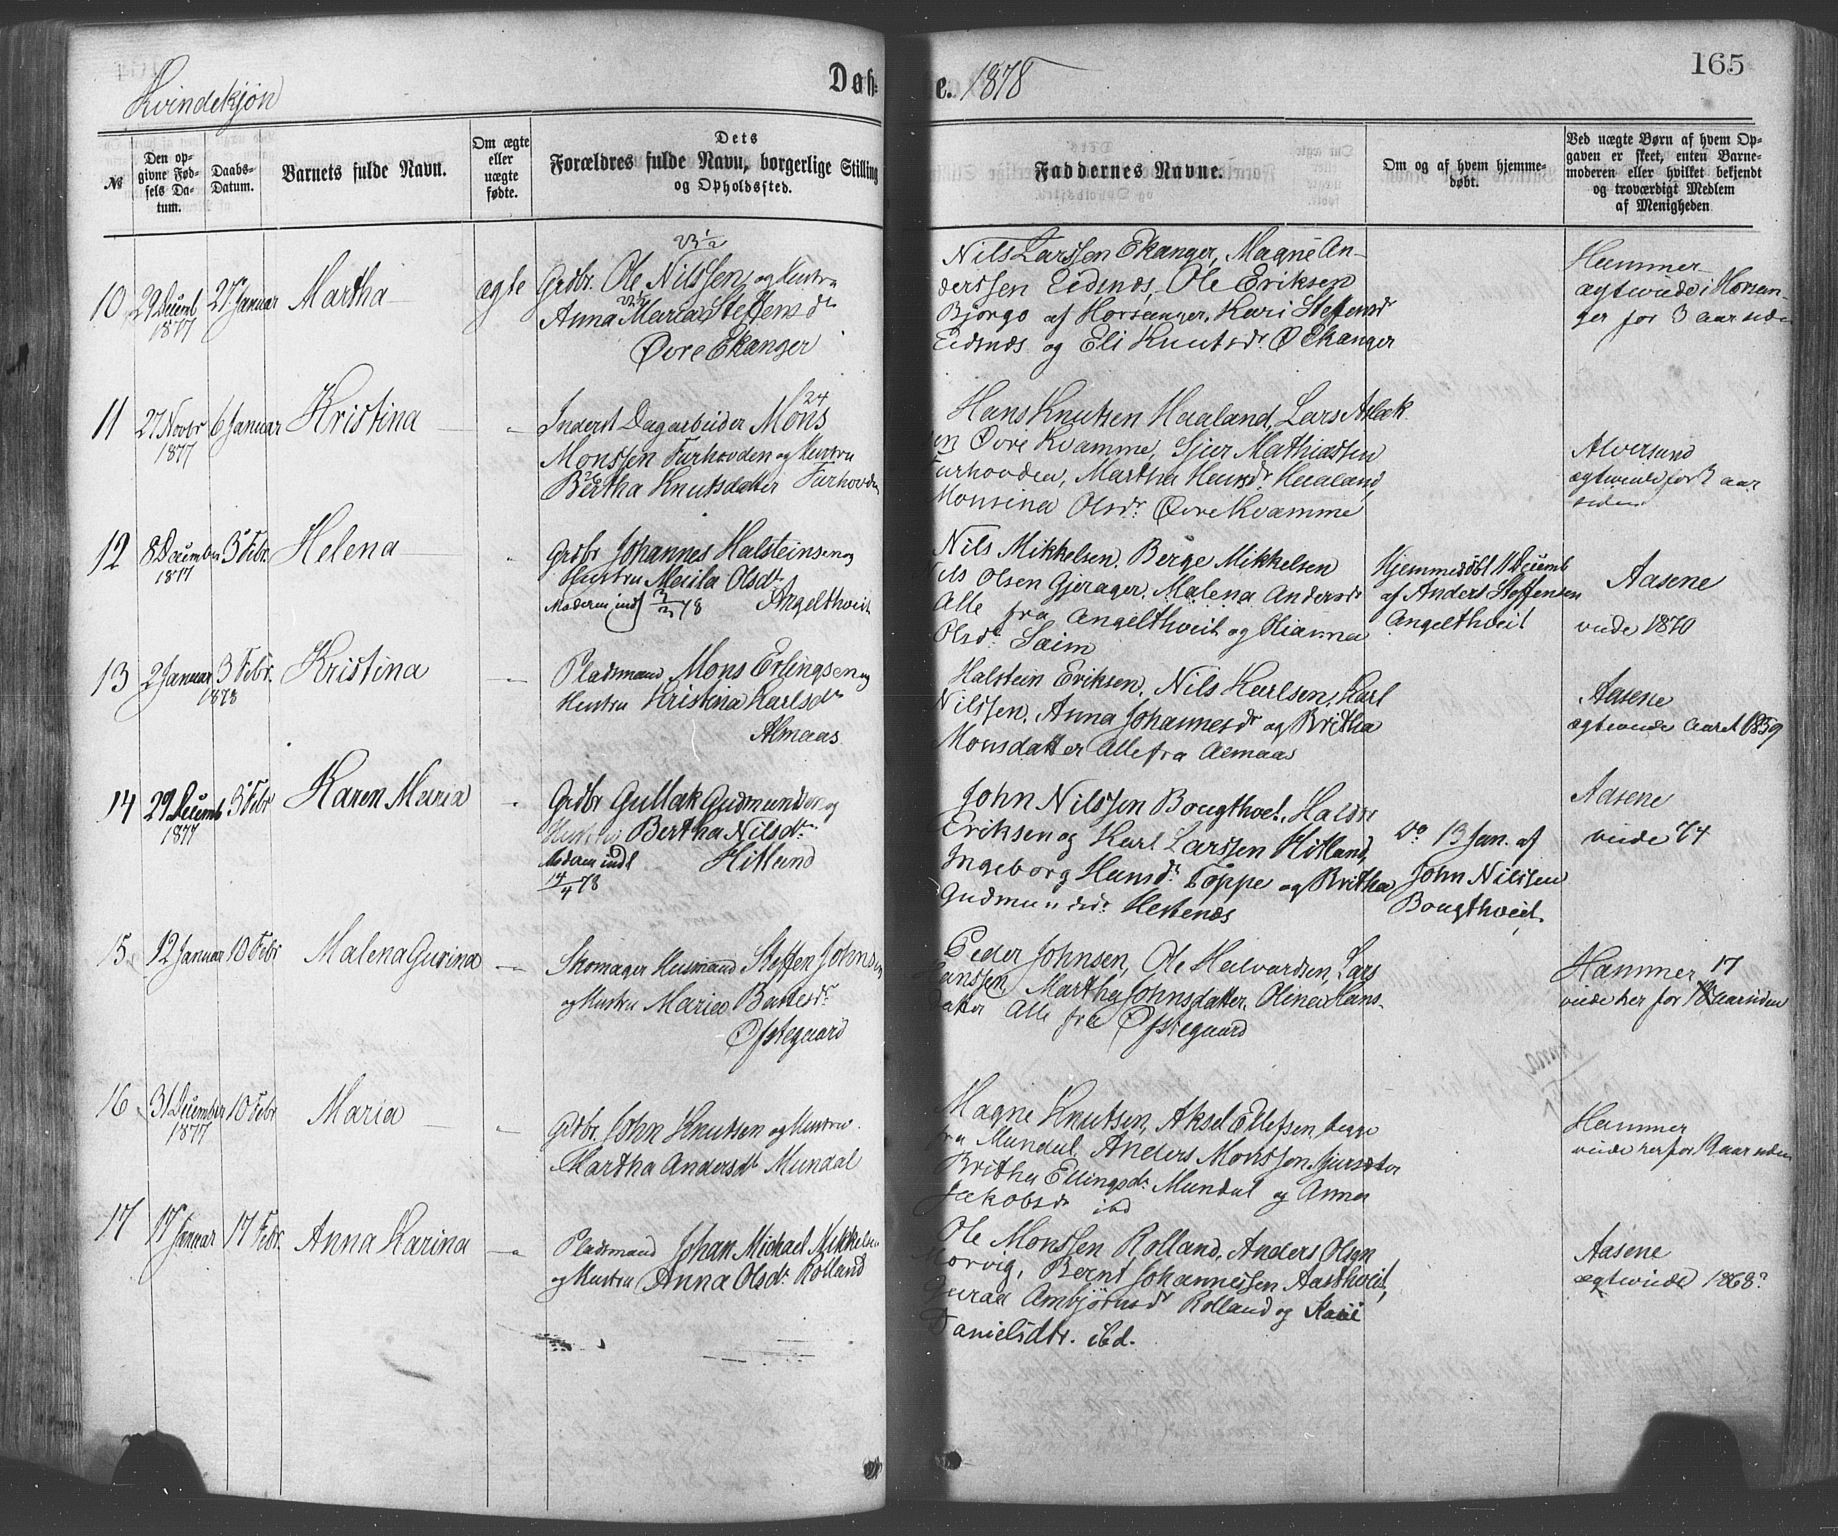 Kvindekjøn
Døb=
te. 1878
165
№
Den op-
givne Fød-
sels Da-
tum.
Daabs-
Datum.
Barnets fulde Navn.
Om ægte
eller
uægte
fødte.
Dets
Forældres fulde Navn, borgerlige Stilling
og Opholdssted.
Faddernes Navne.
Om og af hvem hjemme-
døbt.
Ved uægte Børn af hvem Op-
gaven er skeet, enten Barne-
moderen eller hvilket bekjendt
og troværdigt Medlem
af Menigheden
10
29 Decemb
1877
27 Januar
Martha
ægte
23 1/2
Grdbr. Ole Nilssen og Hustru
Anna Maria Steffensdr
Øvre Ekanger
Nils Larssen Ekanger, Magne An-
derssen Eidsnæs, Ole Eriksen
Bjørgo af Hosanger, Kari Steffensdr
Eidsnæs og Eli Knutsdr Ø Ekanger
Hammer
ægtviede i Hosan-
ger for 3 aar siden
11
27 Novbr
1877
6 Januar
Kristina
24
Inderst Dagarbeider Mons
Monssen Furhovden og Hustru
26
Bertha Knutsdatter Furhovden
Hans Knutsen Haaland, Lars Aslak
sen Øvre Kvamme, Sjur Mathiassen
Furhovden, Martha Hansdr Haaland,
Monsina Olsdr. Øvre Kvamme
Alversund
ægtviede for 3 aar
siden
12
8 December
1877
3 Febr.
Helena
Grdbr Johannes Halsteinsen og
Hustru Marita Olsdr
Moderen indl 3/3 78 Angelthveit
Nils Mikkelsen, Berge Mikkelsen
Nils Olsen Gjerager, Malena Andersdr
Alle fra Angelthveit og Olianna
Olsdr Saim
Hjemmedøbt 11 Decemb
af Anders Steffensen
Angelthveit
Aasene
viede 1870
13
2 Januar
1878
3 Febr.
Kristina
Pladsmand Mons Erlingsen og
Hustru Kristina Karlsdr
Almaas
Halstein Eriksen, Nils Karlsen, Karl
Nilssen, Anna Johannesdr og Britha
Monsdatter alle fra Almaas
Aasene
ægtviede Aaret 1859
14
29 Decemb
1877
3 Febr
Karen Maria
Grdbr Gullak Gudmundsen og
Hustru Bertha Nilsdr
Moderen indl Hitland
14/4 78
John Nilssen Bougthveit, Halst
Eriksen og Karl Larssen Hitland,
Ingeborg Hansdr. Toppe og Britha
Gudmundsdr. Hestenæs
Do 13 Jan. af
John Nilssen
Bougthveit.
Aasene
viede 74
15
12 Januar
10 Febr
Malena Gurina
Skomager Husmand Steffen Johnsen
og Hustru Maria Baardsdr
Øfstegaard
Peder Johnsen, Ole Halvardsen, Lars
Hanssen, Martha Johnsdatter, Olina Hans-
datter Alle fra Øfstegaard
Hammer 17
viede her for aar siden
16
31 December
1877
10 Febr
Maria
Grdbr. John Knutsen og Hustru
Martha Andersdr Mundal
Magne Knutsen, Aksel Ellefsen, begge
fra Mundal, Anders Monssen Gjersetter
Britha Ellingsdr. Mundal og Anna
Jakobsdr ibd
Hammer
viede her for aar siden
17
17 Januar
17 Febr.
Anna Karina
Pladsmand Johan Michael Mikkelsen
og Hustru Anna Olsdr Rolland
Ole Monssen Rolland, Anders Olsen
Morvig, Bernt Johannessen Aasthveit,
Guraa Ambjørnsdr Rolland og Kari
Danielsdtr. ibd.
Aasene
ægtviede 1868?